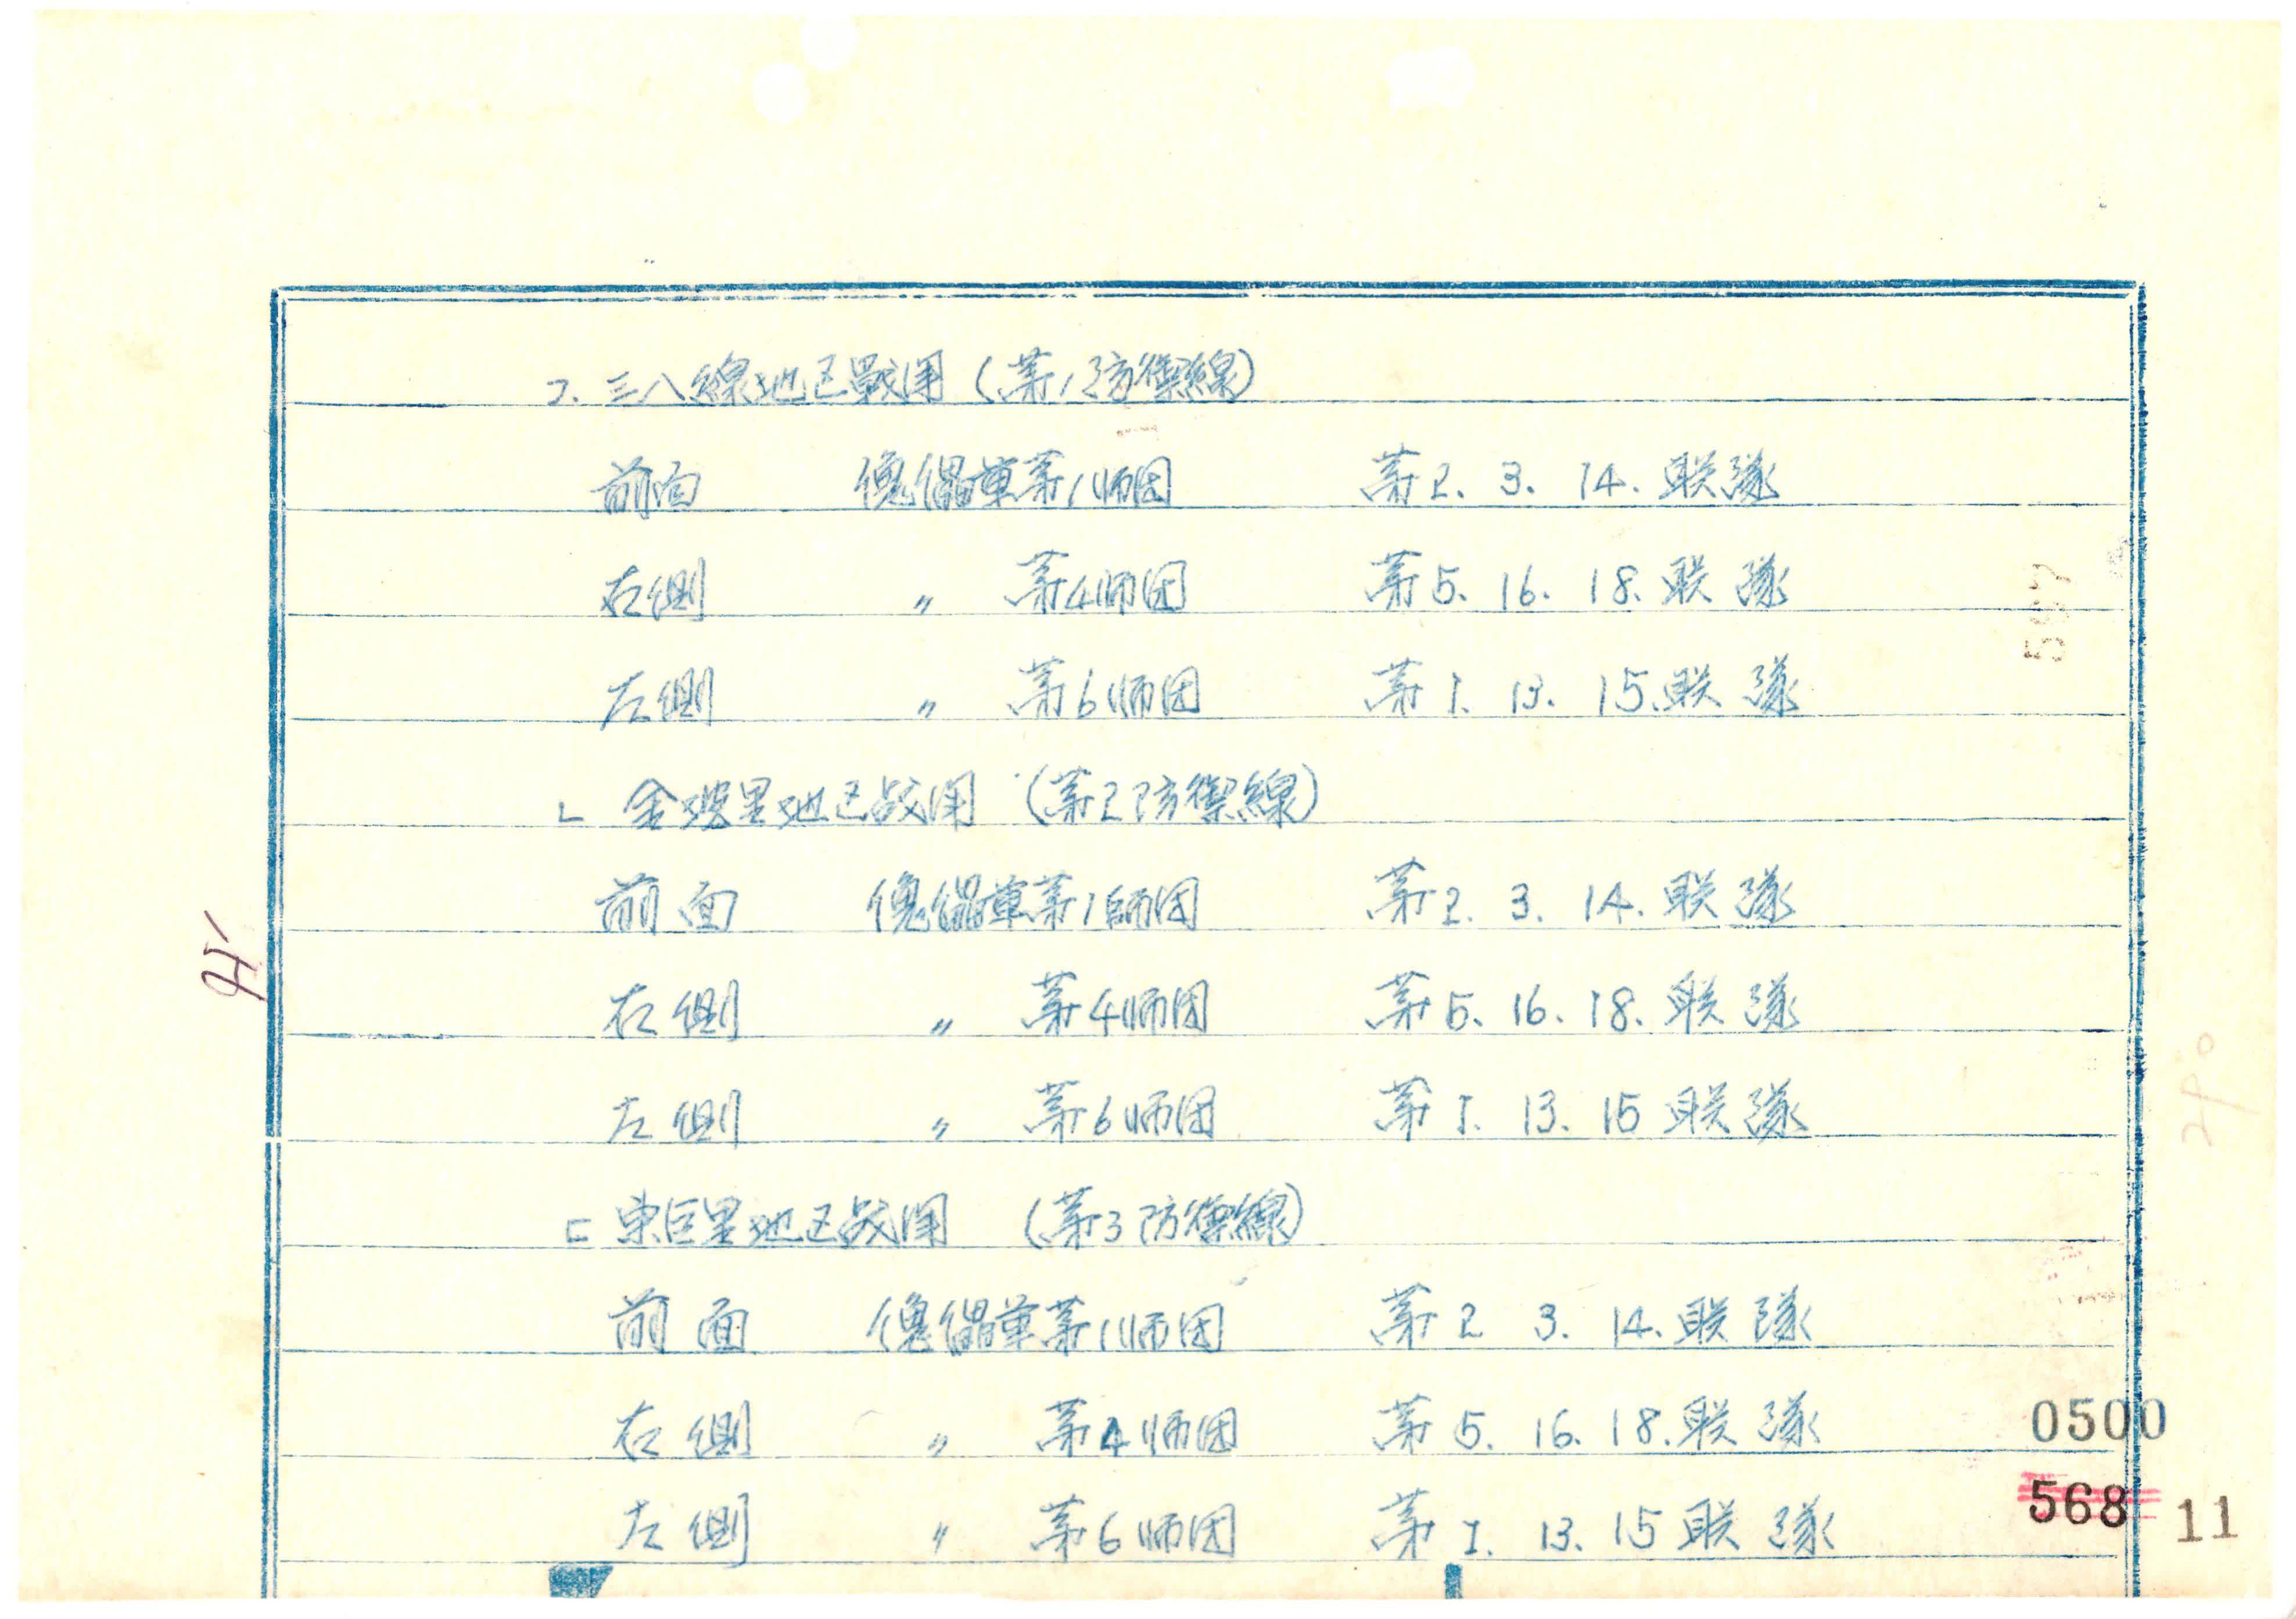 ㄱ. 三八線地区戰闘 (第1防禦線)
前面 傀儡軍第1师团 第2. 3. 14. 联隊
右側 〃 第4师团 第5. 16. 18. 联隊
左側 〃 第6师团 第1. 13. 15. 联隊
ㄴ 金坡里地区战闘 (第2防禦線)
前面 傀儡軍第1師团 第2. 3. 14. 联隊
右側 〃 第4师团 第5. 16. 18. 联隊
左側 〃 第6师团 第1. 13. 15 联隊
ㄷ 東巨里地区战闘 (第3防禦線)
前面 傀儡軍第1师团 第2 3. 14. 联隊
右側 〃 第4师团 第5. 16. 18. 联隊
左側 〃 第6师团 第1. 13. 15 联隊
0500
568 11